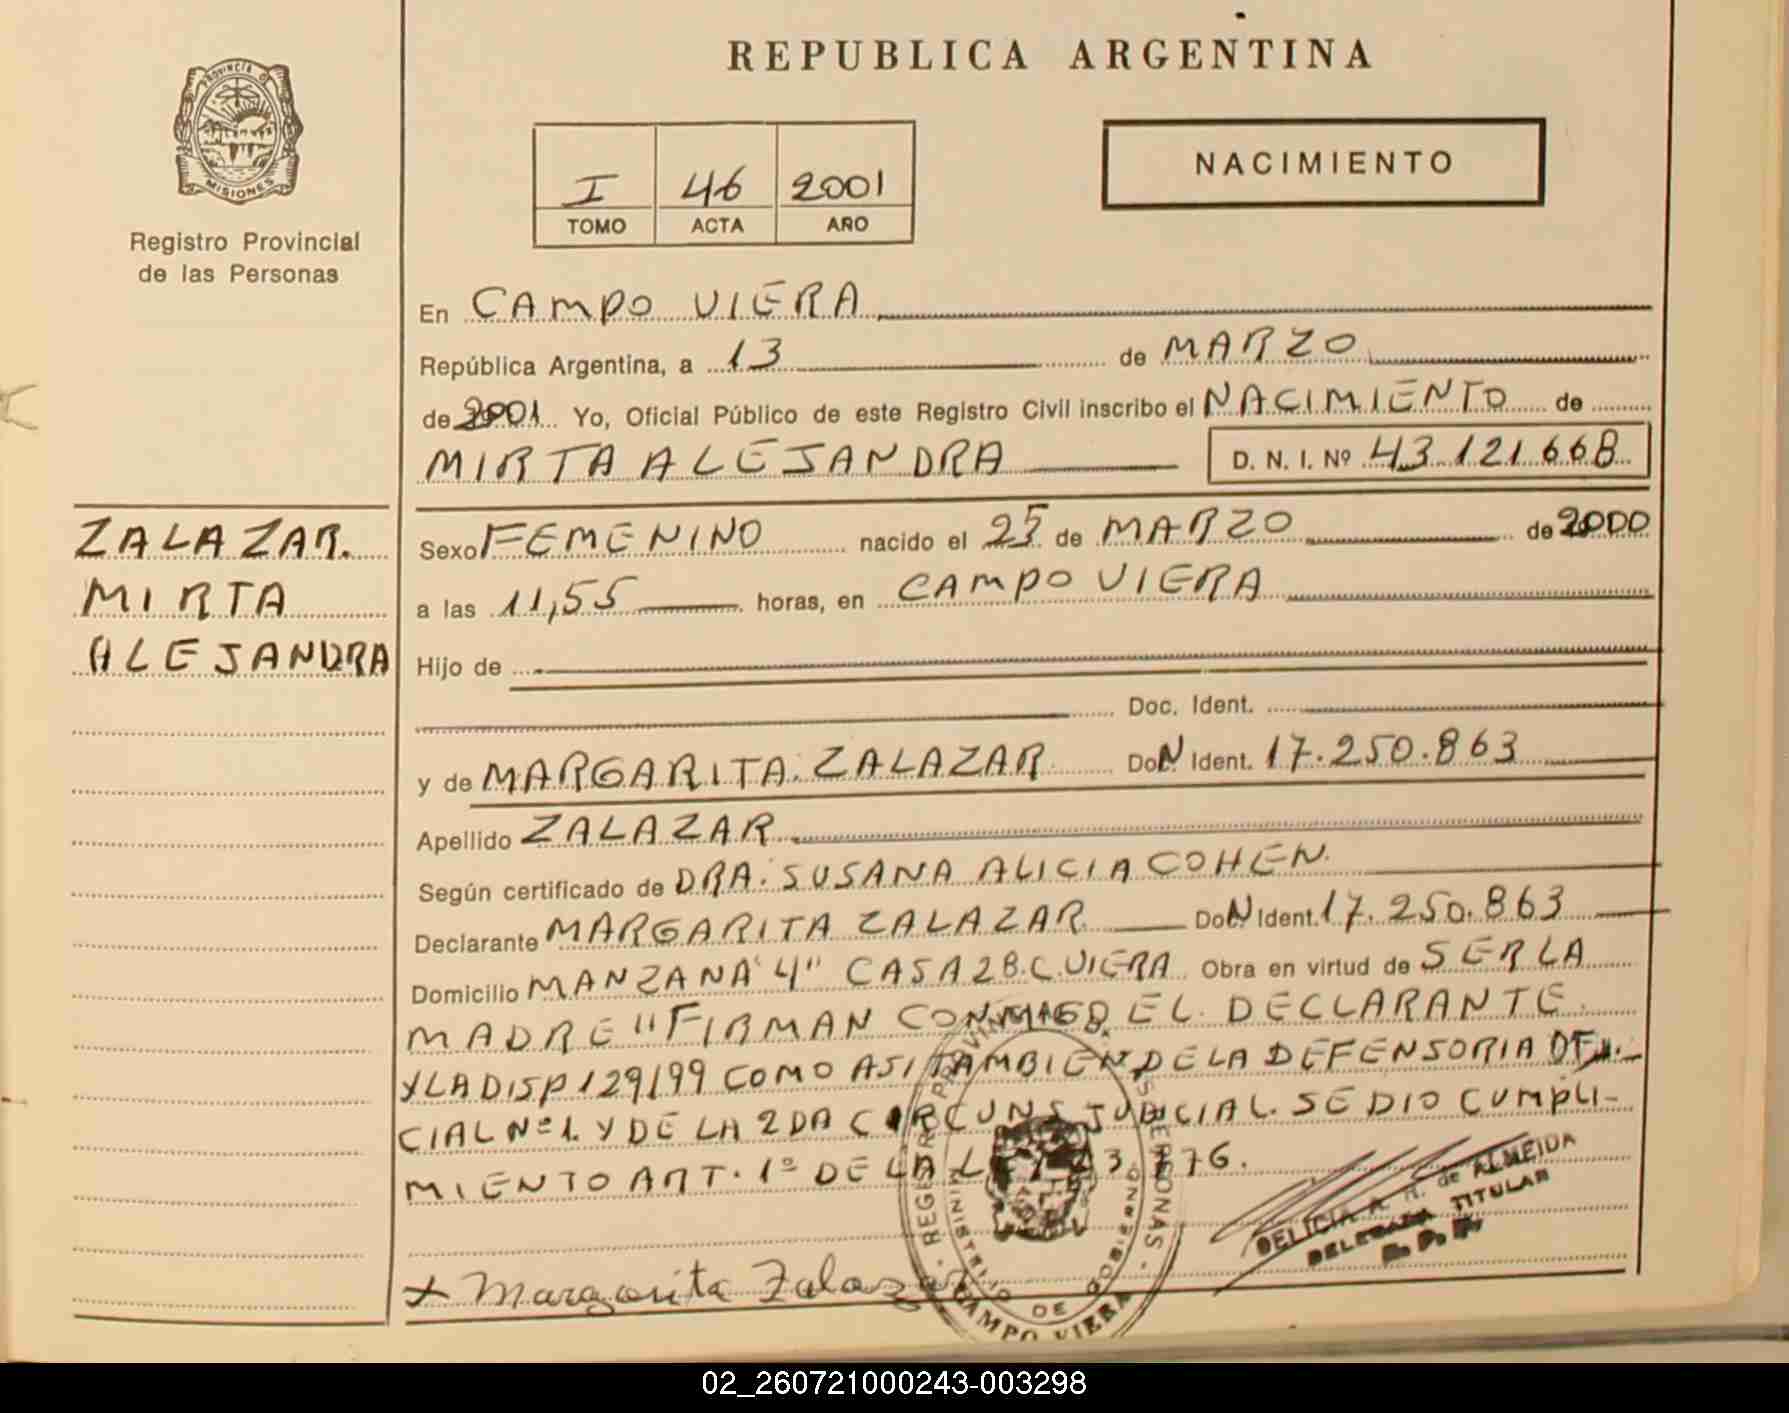 REPUBLICA ARGENTINA
PROVINCIA D
MISIONES
Registro Provincial
de las Personas
I 46 2001
TOMO ACTA AÑO
NACIMIENTO
En CAMPO VIERA
República Argentina, a 13 de MARZO
de 2001 Yo, Oficial Público de este Registro Civil inscribo el NACIMIENTO de
MIRTA ALEJANDRA D. N. I. Nº 43.121.668
ZALAZAR.
MIRTA
ALEJANDRA
Sexo FEMENINO nacido el 25 de MARZO de 2000
a las 11,55 horas, en CAMPO VIERA
Hijo de
Doc. Ident.
y de MARGARITA ZALAZAR Ident. 17.250.863
Apellido ZALAZAR
Según certificado de DRA. SUSANA ALICIA COHEN.
Declarante MARGARITA ZALAZAR Ident. 17.250.863
Domicilio MANZANA "4" CASA 28.C.VIERA Obra en virtud de SER LA
MADRE "FIRMAN CONMIGO EL DECLARANTE.
Y LA DISP 129/99 COMO ASI TAMBIEN DE LA DEFENSORIA OFI-
CIAL Nº1. Y DE LA 2DA CIRCUNS JUDICIAL. SE DIO CUMPLI-
MIENTO ART. 1º DE LA LEY 23.776.
REGISTR PROVINCIAL PERSONAS
MINISTERIO DE GOBIERNO
CAMPO VIERA
DELICIA R. H. de ALMEIDA
DELEGADA TITULAR
R. P. P.
x Margarita Zalazar
02_260721000243-003298